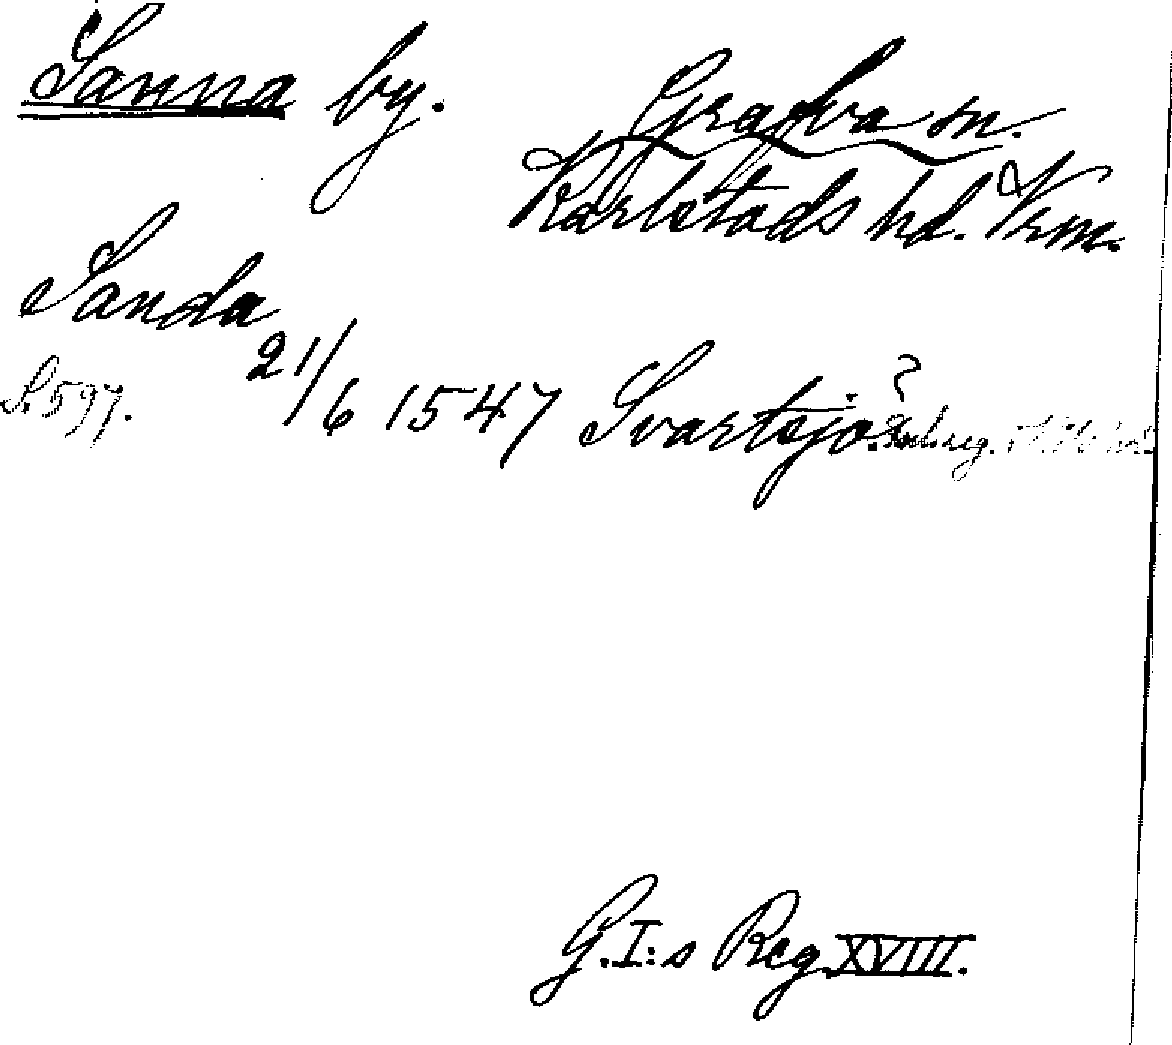 Sanna by.
Grafva sn.
Karlstads hd. Vrm.
Sanda
S. 597.
21/6 1547 Svartsjö.
G.I:s Reg. XVIII.